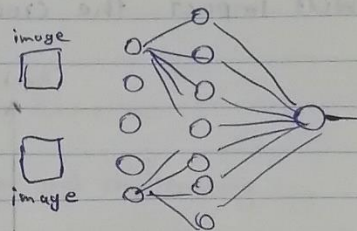 image
image